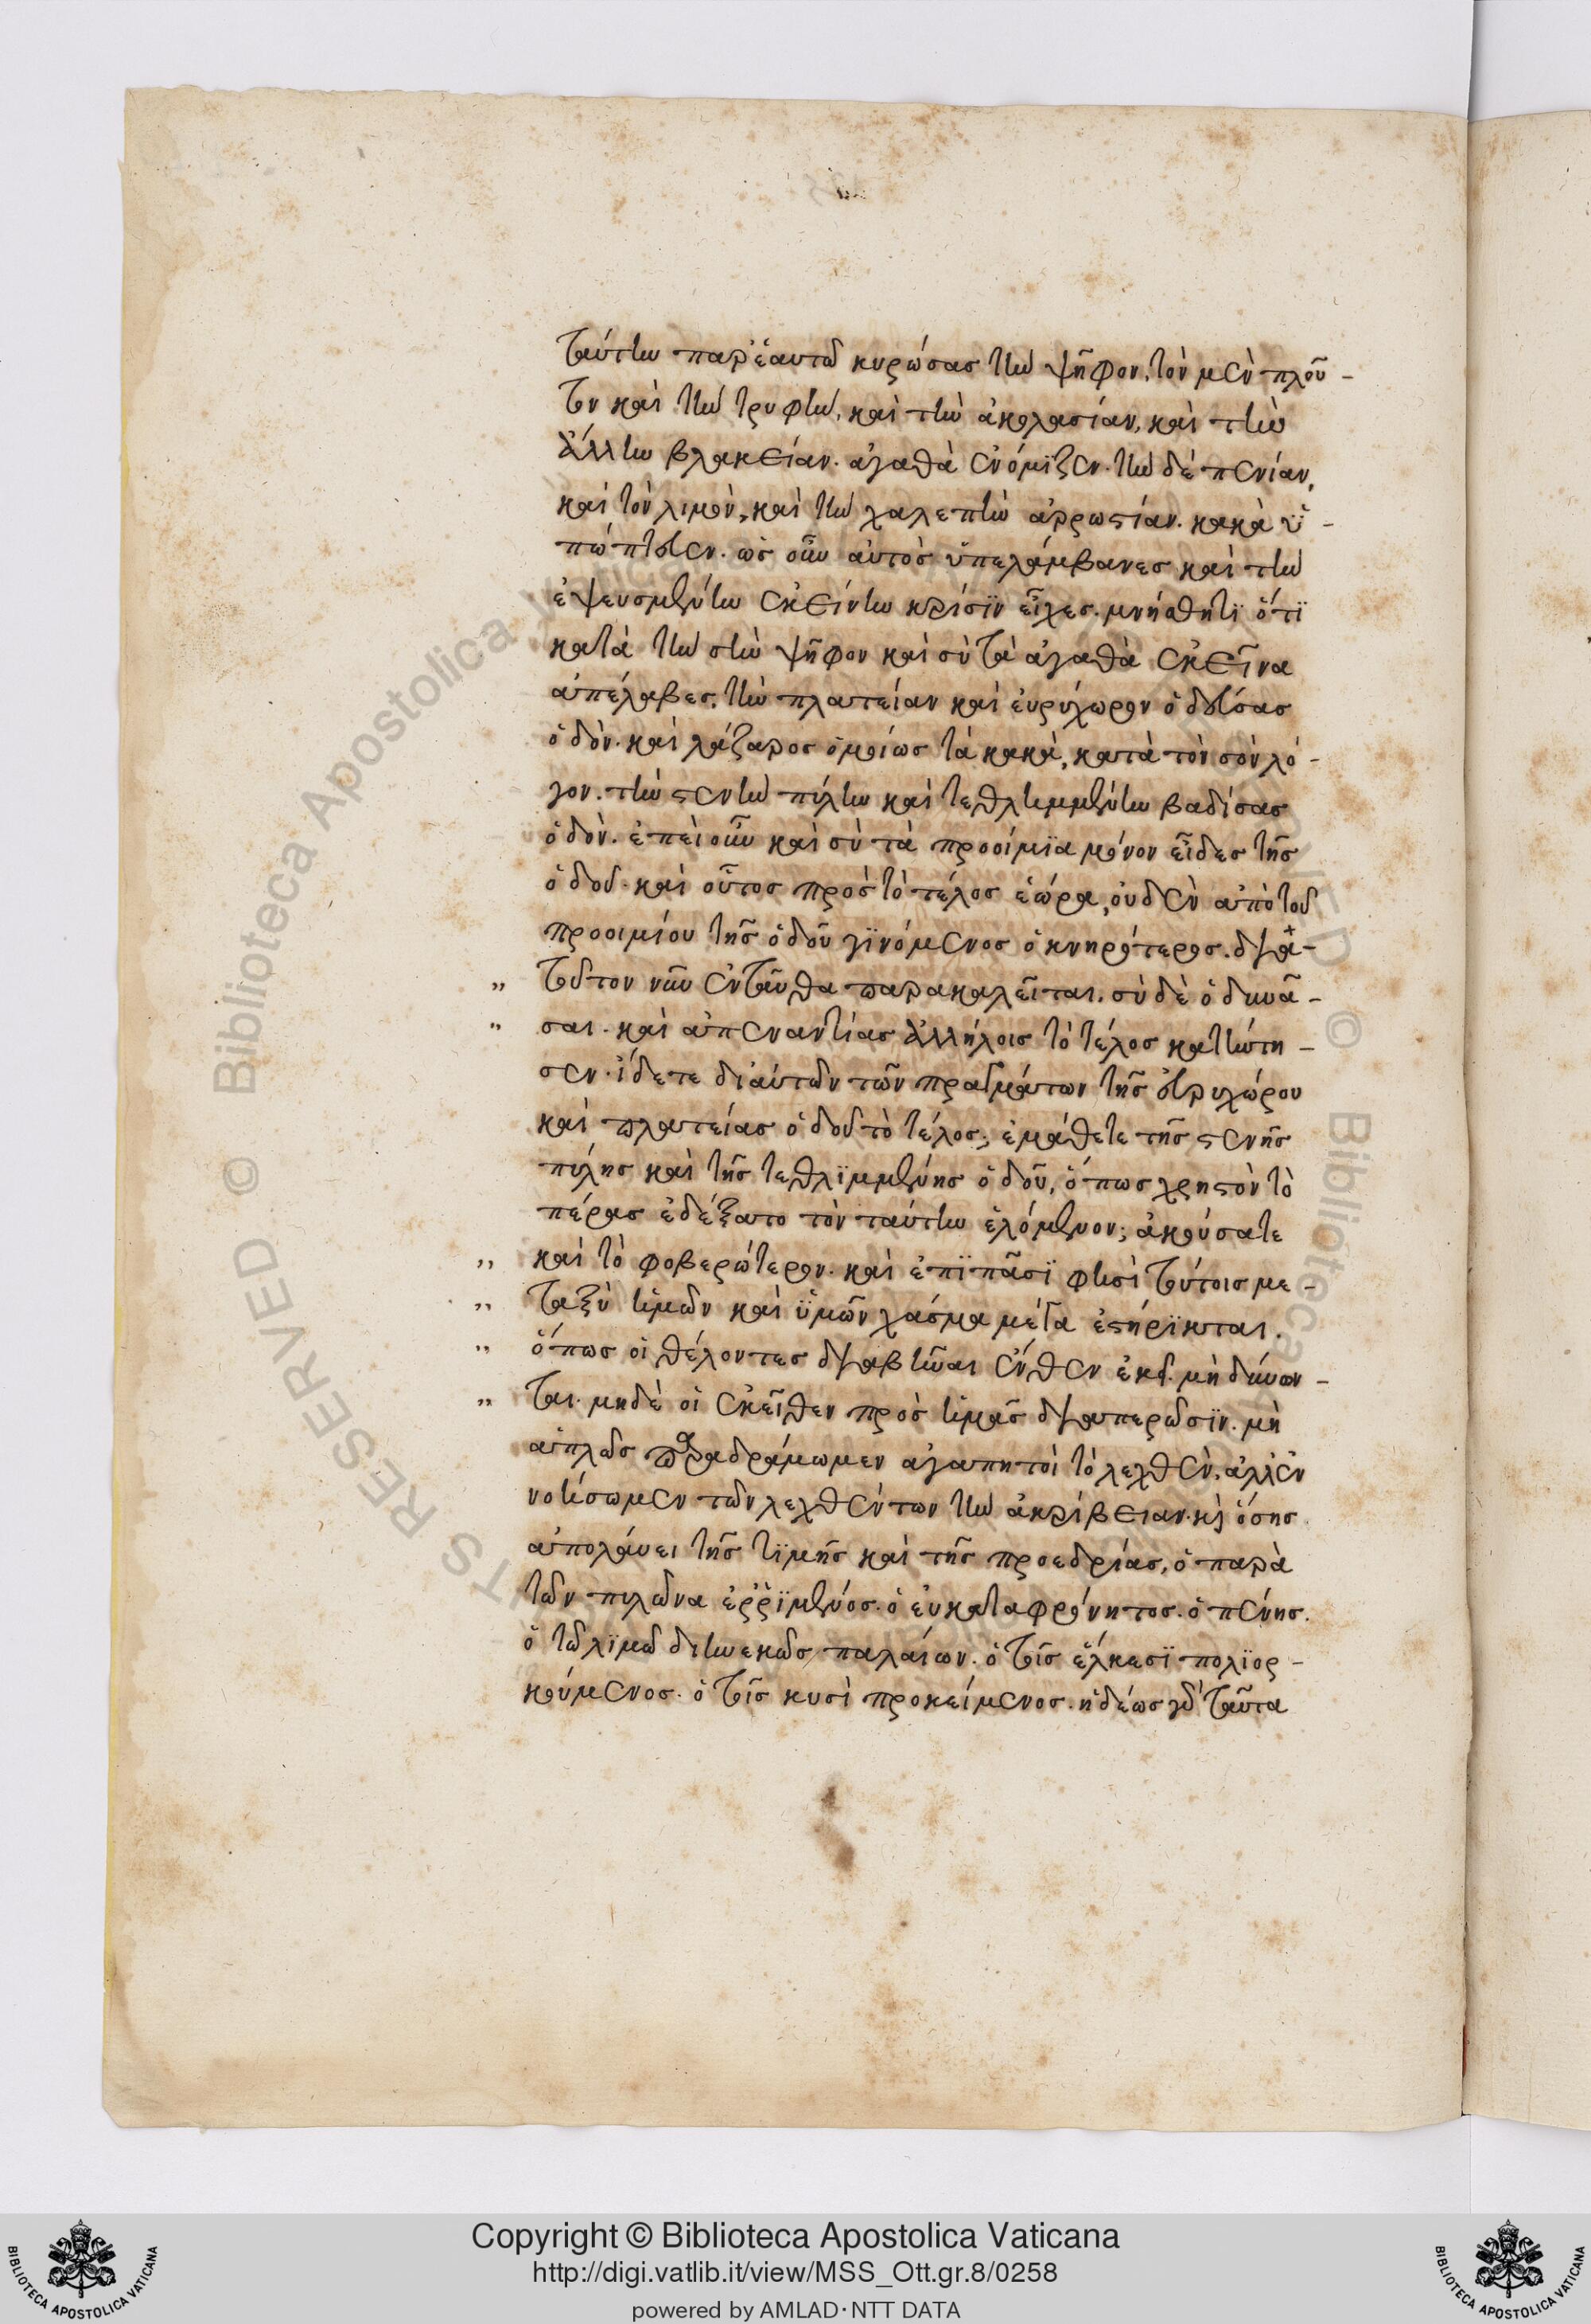 ταύτην παρ' ἑαυτῶ κυρώσας τὴν ψῆφον, τὸν μὲν πλοῦ-
τον καὶ τὴν τρυφὴν, καὶ τὴν ἀκολασίαν, καὶ τὴν
ἄλλην βλακείαν. ἀγαθὰ ἐνόμιζεν. τὴν δὲ πενίαν,
καὶ τὸν λιμὸν, καὶ τὴν χαλεπὴν ἀρρωστίαν. κακὰ ὑ-
πώπτευεν. ὡς οὖν αὐτὸς ὑπελάμβανες καὶ τὴν
ἐψευσμένην ἐκείνην κρίσιν εἶχες. μνήσθητι ὅτι
κατὰ τὴν σὴν ψῆφον καὶ σὺ τὰ ἀγαθὰ ἐκεῖνα
ἀπέλαβες. τὴν πλατείαν καὶ εὐρύχωρον ὁδεύσας
ὁδὸν. καὶ λάζαρος ὁμοίως τὰ κακὰ, κατὰ τὸν σὸν λό-
γον. τὴν στενὴν πύλην καὶ τεθλιμμένην βαδίσας
ὁδὸν. ἐπεὶ οὖν καὶ σὺ τὰ προοίμια μόνον εἶδες τῆς
ὁδοῦ. καὶ οὗτος πρὸς τὸ τέλος ἑώρα, οὐδὲν ἀπὸ τοῦ
προοιμίου τῆς ὁδοῦ γινόμενος ὀκνηρότερος. διὰ
„ τοῦτον νῦν ἐνταῦθα παρακαλεῖται. σὺ δὲ ὀδυνᾶ-
„ σαι. καὶ ἀπεναντίας ἀλλήλοις τὸ τέλος κατήντη-
σεν. ἴδετε δι' αὐτῶν τῶν πραγμάτων τῆς εὐρυχώρου
καὶ πλατείας ὁδοῦ τὸ τέλος; ἐμάθετε τῆς στενῆς
πύλης καὶ τῆς τεθλιμμένης ὁδοῦ, ὅπως χρηστὸν τὸ
πέρας ἐδέξατο τὸν ταύτην ἑλόμενον; ἀκούσατε
„ καὶ τὸ φοβερώτερον. καὶ ἐπὶ πᾶσι φησὶ τούτοις με-
„ ταξὺ ἡμῶν καὶ ὑμῶν χάσμα μέγα ἐστήρικται.
„ ὅπως οἱ θέλοντες διαβῆναι ἔνθεν ἐκεῖ. μὴ δύνων-
„ ται. μηδὲ οἱ ἐκεῖθεν πρὸς ἡμᾶς διαπερῶσιν. μὴ
ἁπλῶς παραδράμωμεν ἀγαπητοὶ τὸ λεχθὲν, ἀλλ' ἐν
νοήσωμεν τῶν λεχθέντων τὴν ἀκρίβειαν. κὶ ὅσης
ἀπολαύει τῆς τιμῆς καὶ τῆς προεδρίας, ὁ παρὰ
τῶν πυλῶνα ἐρῥιμένος. ὁ εὐκαταφρόνητος. ὁ πένης.
ὁ τῶ λιμῶ διηνεκῶς παλαίων. ὁ τοῖς ἕλκεσι πολιορ-
κούμενος. ὁ τοῖς κυσὶ προκείμενος. ἡδέως γὰρ ταῦτα
Copyright © Biblioteca Apostolica Vaticana
http://digi.vatlib.it/view/MSS_Ott.gr.8/0258
powered by AMLAD·NTT DATA